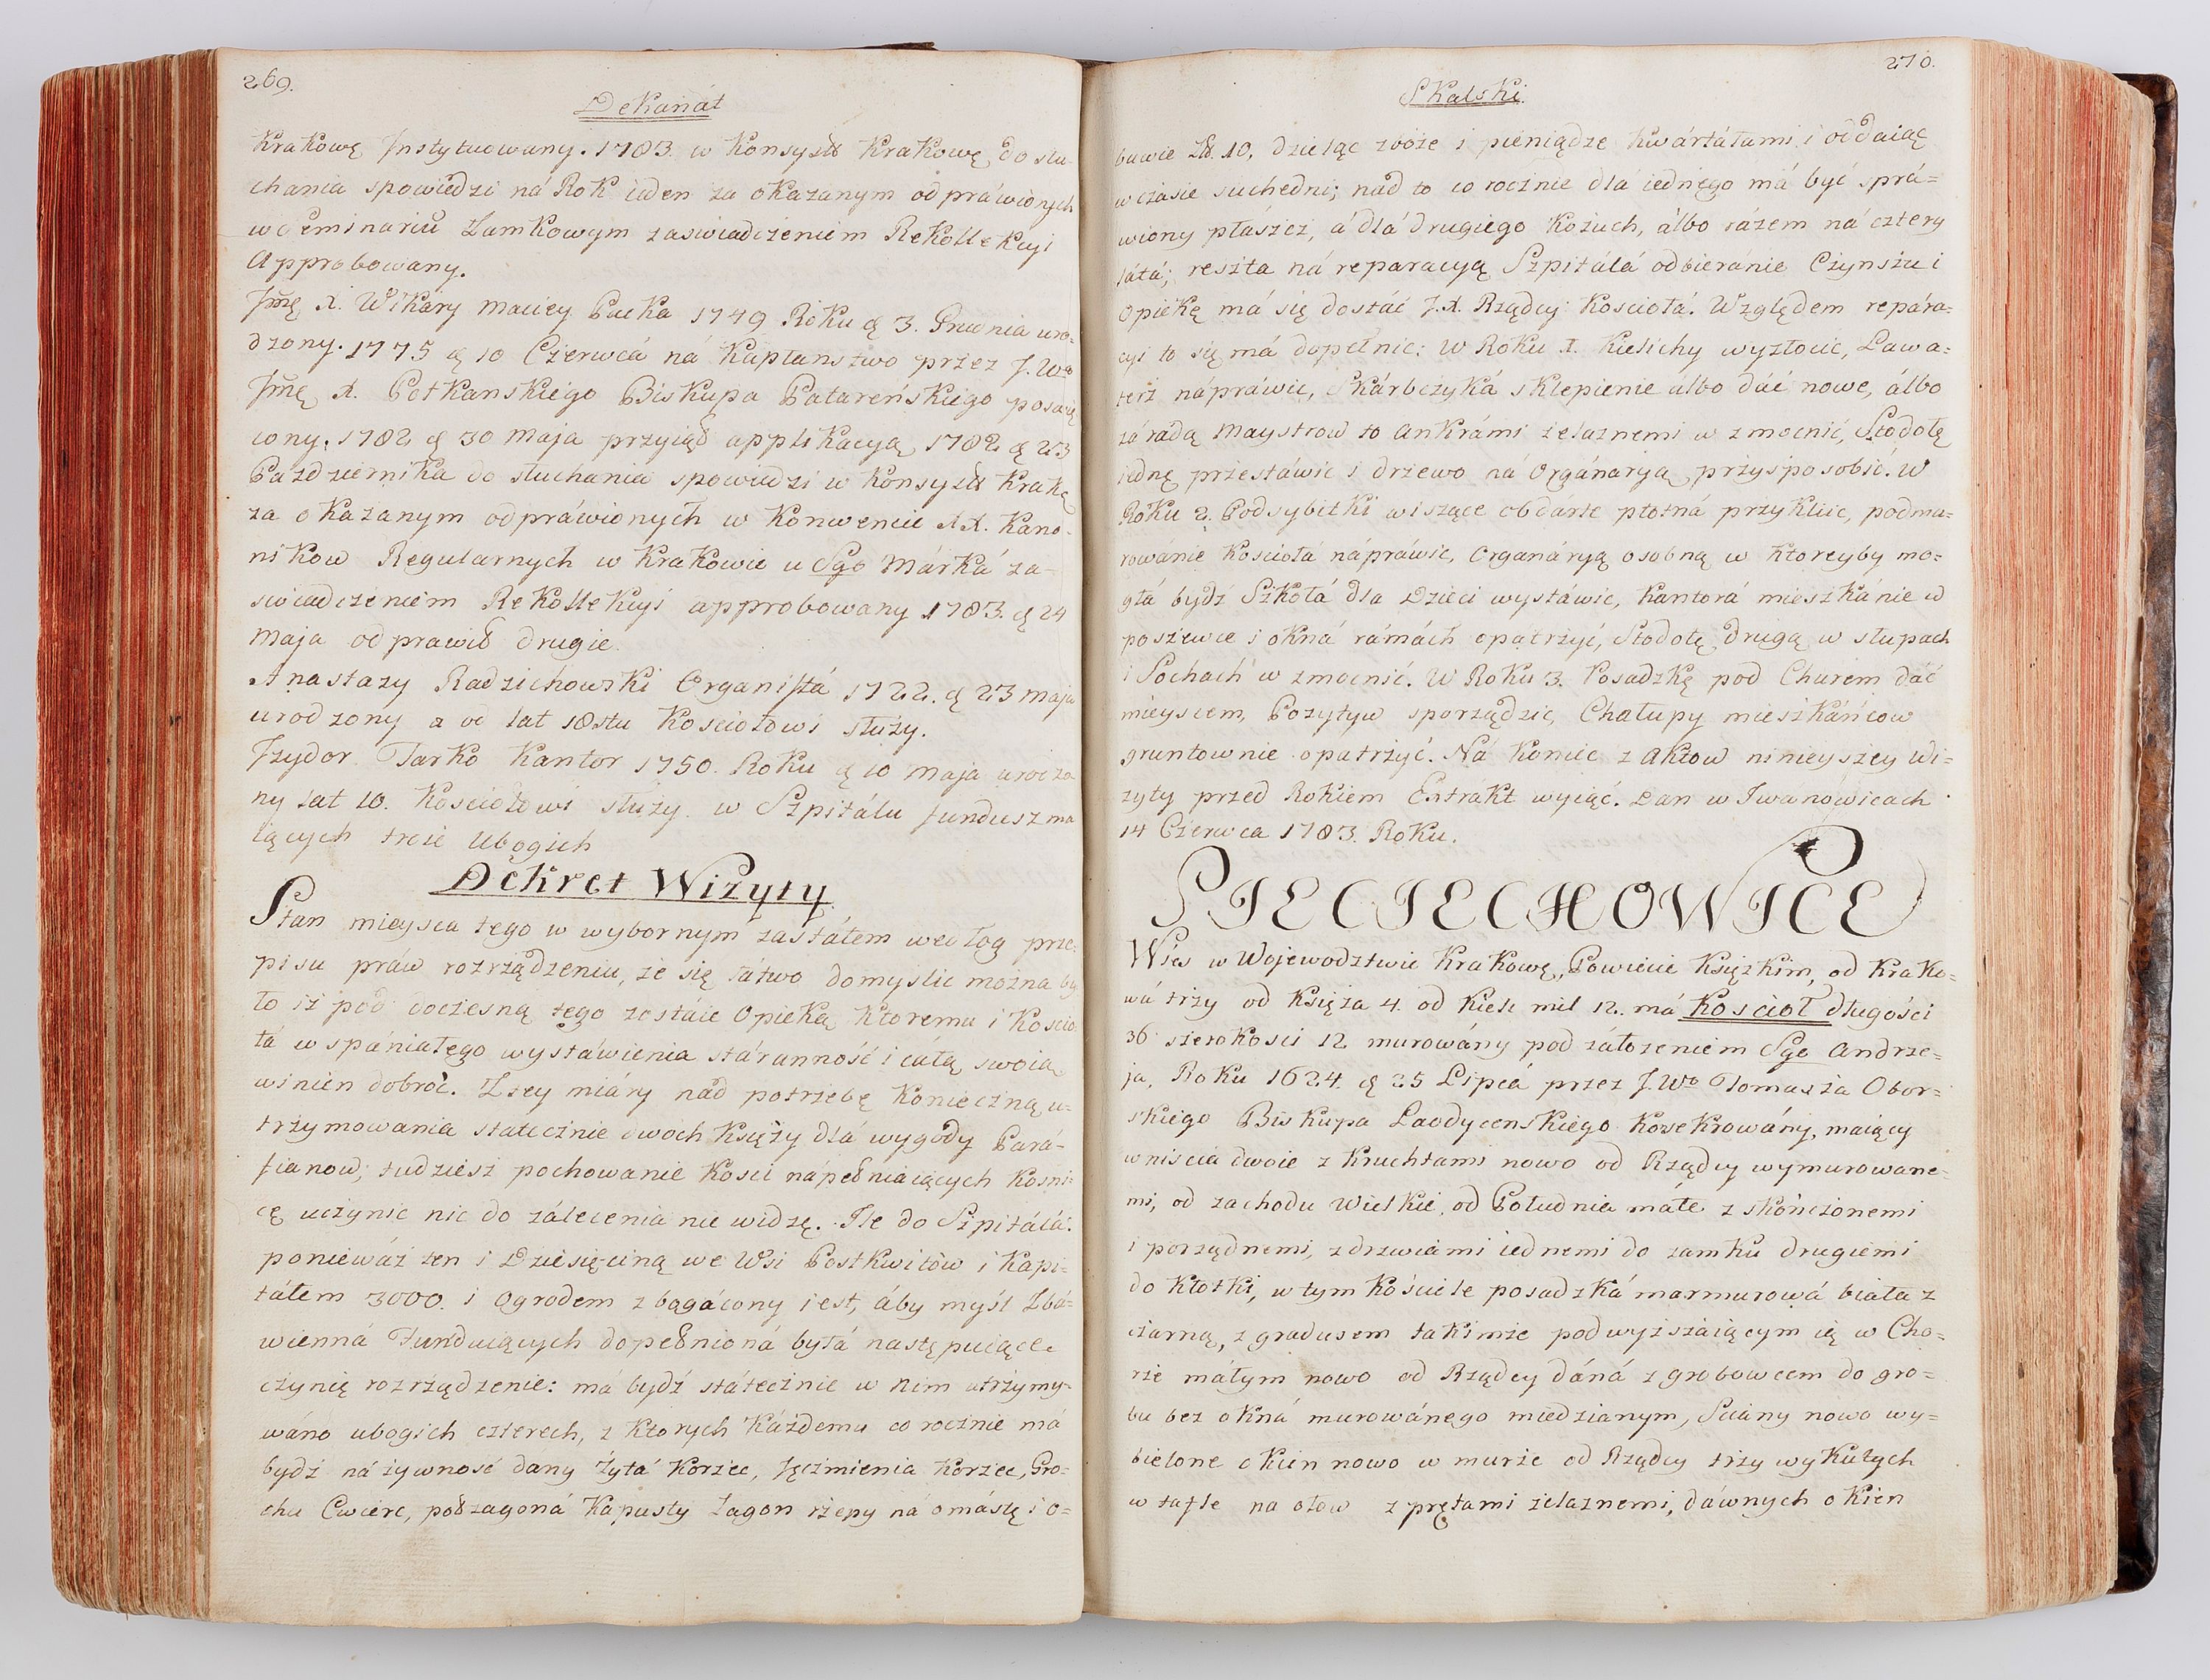 269.
Dekanat
Krakowę Instytuowany. 1783. w Konsyst Krakowę do słu-
chania spowiedzi ná Rok ieden za okazanym odpráwionych
w Seminariu Zamkowym zaswiadczeniem Rekollekcyi
Approbowany.
Jmę X. Wikary Maciey Pucka 1749 Roku d 3. Grudnia uro-
dzony. 1775 d 10 Czerwcá ná Kapłanstwo przez J.Wo
Jmę X. Potkanskiego Biskupa Patareńskiego poswię
cony. 1782 d 30 Maja przyiął applikacyą 1782 d 23
Pazdziernika do słuchania spowiedzi w Konsyst Krakę
za okazanym odpráwionych w Konwencie XX. Kano-
nikow Regularnych w Krakowie u Sgo Márká za-
swiadczeniem Rekollekcyi approbowany 1783. d 24
Maja odprawił drugie.
Anastazy Radzichowski Organistá 1722. d 23 maja
urodzony a od lat 18stu Kosciołowi służy.
Jzydor Tarko Kantor 1750. Roku d 10 Maja urodzo
ny lat 10. Kosciołowi służy. w Szpitálu fundusz ma
iących trcie Ubogich
Dekret Wizyty
Stan mieysca tego w wybornym zastałem według prze-
pisu práw rozrządzeniu, że się łátwo domyslic można by
ło iż pod doczesną tego zostáie Opieką ktoremu i Koscio
łá wspániałego wystáwienia stáranność i cáłą swoią
winien dobroć. Z tey miáry nád potrzebę Konieczną u-
trzymowania statecznie dwoch Księży dlá wygody Pará-
fianow; tudziesz pochowanie Kosci nápełniaiących Kosni-
cę uczynic nic do zálecenia nie widzę. Ile do Szpitálá.
ponieważ ten i Dziesięciną we Wsi Postkwitów i Kapi-
tałem 3000. i Ogrodem zbogácony iest, áby myśl Zbá-
wienná Funduiących dopełnioná byłá następuiące
czynię rozrządzenie: má bydź státecznie w nim utrzymy-
wáno ubogich czterech, z ktorych Káżdemu co rocznie má
bydź ná żywność dany Żytá Korzec, Jęczmienia Korzec, Gro-
chu Cwierc, poł zagoná Kapusty Zagon rzepy ná omástę i o-
270.
Skalski.
buwie Zł. 10, dzieląc zboże i pieniądze kwártáłami i oddaiąc
w czasie suchedni; nád to corocznie dlá iednęgo má być sprá-
wiony płászcz, á dlá drugiego Kożuch, álbo rázem ná cztery
látá; reszta ná reparacyą Szpitálá odbieranie Czynszu i
Opiekę má się dostáć J.X. Rządcy Kosciołá. Względem repára-
cyi to się má dopełnic: W Roku 1. Kielichy wyzłocic, Lawa-
terz nápráwic, Skárbczyká sklepienie álbo dáć nowe, álbo
zá rádą Maystrow to Ankrámi żelaznemi wzmocnić, Stodołę
iednę przestáwic i drzewo ná Orgánaryą przysposobić. W
Roku 2. Podsybitki wiszące obdárte płotná przykliic, podma-
rowánie Kosciołá nápráwic, Organáryą osobną w ktoreyby mo-
głá bydź Szkołá dla Dzieci wystáwic, Kantorá mieszkánie w
poszewce i okná rámách opatrzyć, Stodołę drugą w słupach
i Sochach wzmocnić. W Roku 3. Posadzkę pod Churem dáć
mieyscem, Pozytyw sporządzic, Chałupy mieszkáńcow
gruntownie opatrzyć. Ná Koniec z Aktow ninieyszey Wi-
zyty przed Rokiem Extrákt wyiąć. Dan w Iwanowicach
14 Czerwca 1783. Roku.
SIECIECHOWICE
Wieś w Wojewodztwie Krakowę, Powiecie Księzkim, od Krako-
wá trzy od Księża 4. od Kielc mil 12. má Kościoł długości
36 szerokosci 12 murowány pod záłożeniem Sgo Andrze-
ja, Roku 1624. d 25 Lipcá przez J.Wo Tomasza Obor-
skiego Biskupa Laodycenskiego Kosekrowány, maiący
wniścia dwoie z Kruchtami nowo od Rządcy wymurowane-
mi, od zachodu wielkie, od Południa máłe z skończonemi
i porządnemi, z drzwiámi iednemi do zamku drugiemi
do Kłotki, w tym Kościele posadzká marmurowá biała z
czarną, z gradusem takimże podwyższaiącym ią w Cho-
rze máłym nowo od Rządcy dáná z grobowcem do gro-
bu bez okná murowánego miedzianym, Sciany nowo wy-
bielone okien nowo w murze od Rządcy trzy wykutych
w tafle na ołow z prętami żelaznemi, dáwnych okien